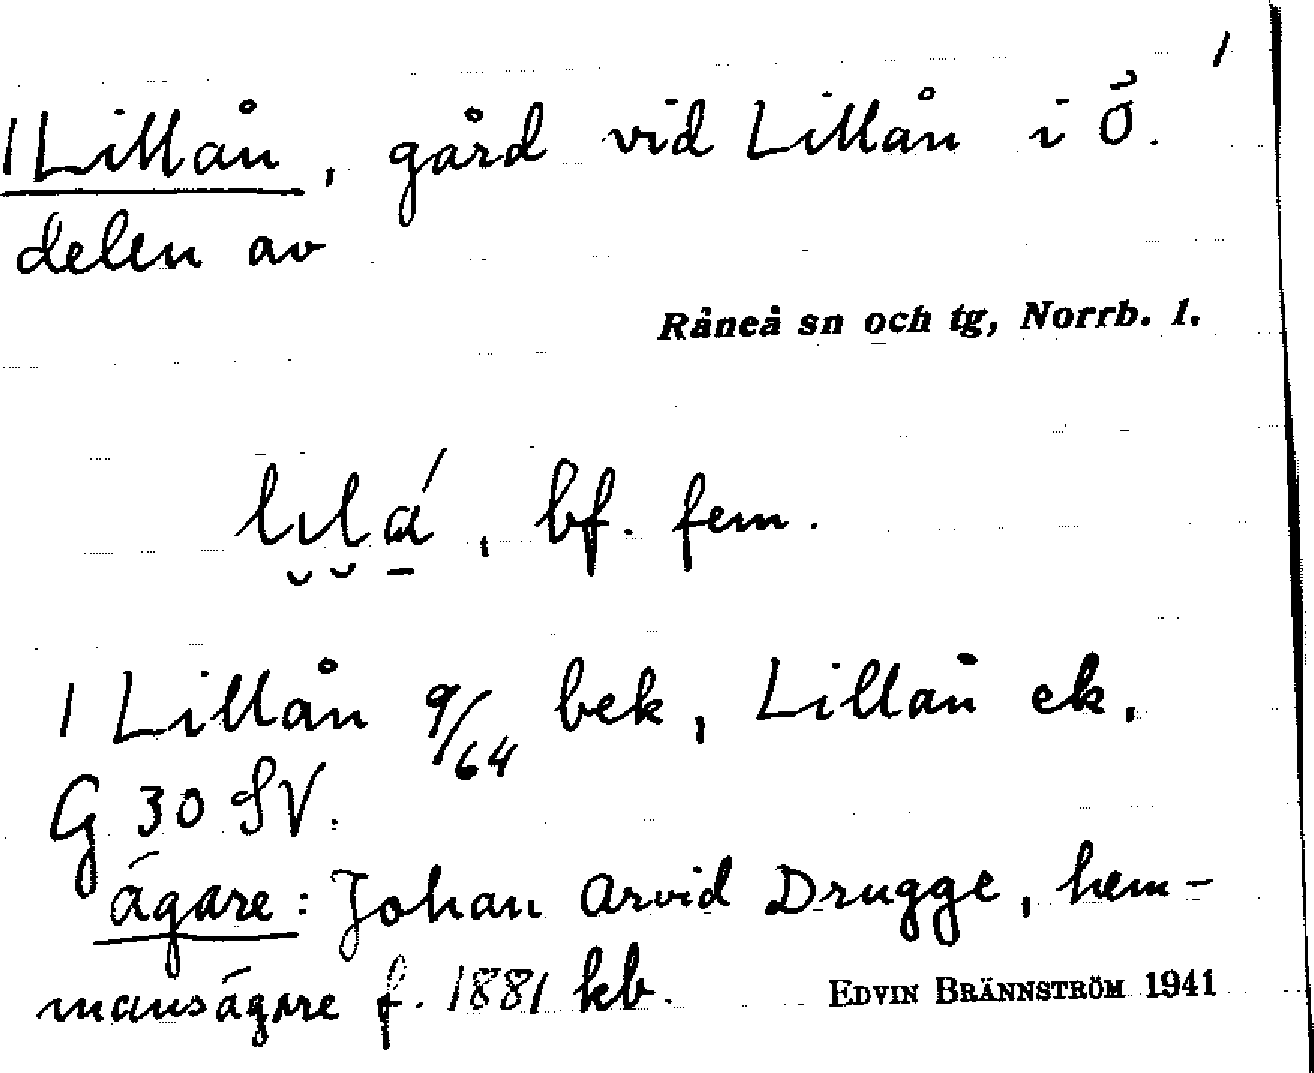 1
1 Lillån, gård vid Lillån i Ö.
delen av
Råneå sn och tg, Norrb. 1.
lılá, bf. fem.
1 Lillån 9/64 bek, Lillån ek,
G 30 SV.
ägare: Johan Arvid Drugge, hem-
mansägare f. 1881 kb.
EDVIN BRÄNNSTRÖM 1941